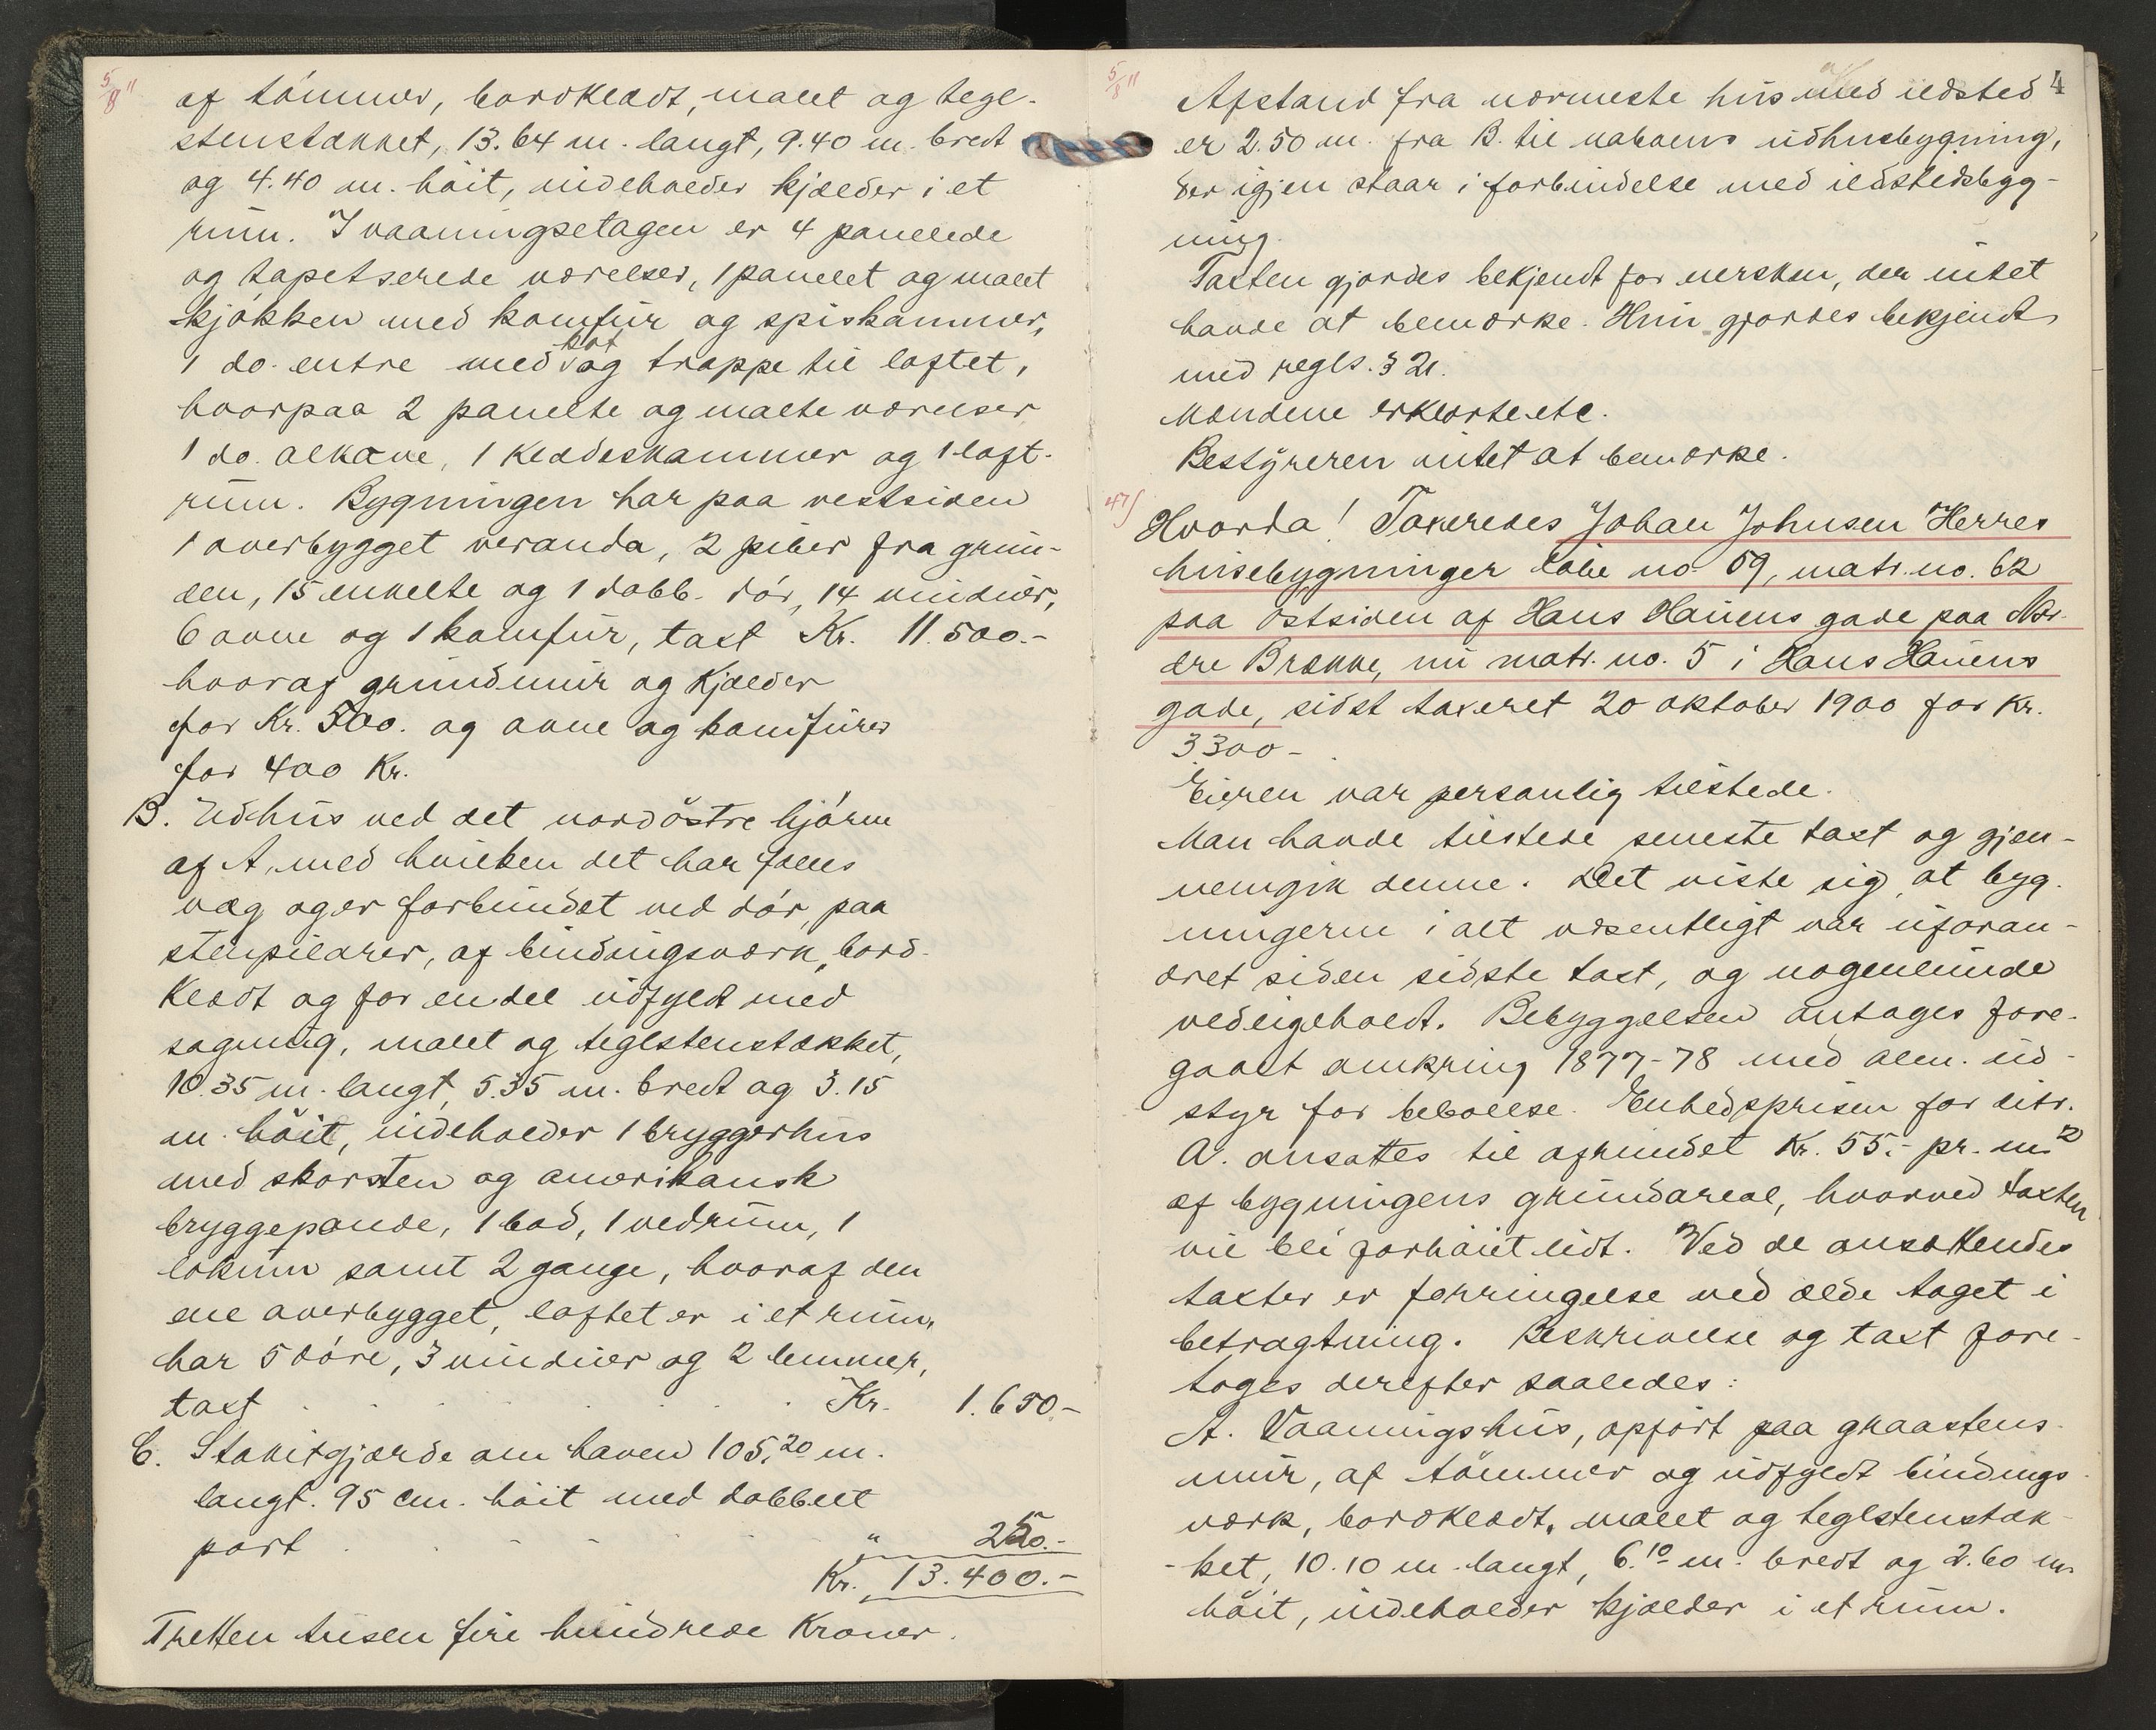 5/8 11
af tömmer, bordklædt, malet og tegl-
stenstækket, 13.64 m. langt, 9.40 m. bredt
og 4.40 m. höit, indeholder kjælder i et
rum. I vaaningsetagen er 4 panelede
og tapetserede værelser, 1 panelet og malet
kjökken med komfur og spiskammer,
1 do. entre med kot og trappe til loftet,
hvorpaa 2 panelte og malte værelser
1 do. alkove, 1 klædeskammer og 1 loft-
rum. Bygningen har paa vestsiden
1 overbygget veranda, 2 piber fra grun-
den, 15 enkelte og 1 dobb. dör, 14 vinduer,
6 ovne og 1 komfur, taxt Kr. 11.500.-
hvoraf grundmur og kjælder
for Kr. 500. og ovne og komfurer
for 400 Kr.
B. Udhus ved det nordöstre hjörne
af A, med hvilken det har fælles
væg og er forbundet ved dör, paa
stenpilarer, af bindingsværk, bord-
klædt og for en del udfyldt med
sagmug, malet og teglstenstækket,
10.35 m. langt, 5.35 m. bredt og 3.15
m. höit, indeholder 1 bryggerhus
med skorsten og amerikansk
bryggepande, 1 bod, 1 vedrum, 1
lokum samt 2 gange, hvoraf den
ene overbygget, loftet er i et rum,
har 5 döre, 3 vinduer og 2 lemmer,
taxt . . . . . . Kr. 1.650.-
C. Stakitgjærde om haven 105.20 m.
langt. 95 cm. höit med dobbelt
port . . . . . " 250.-
Kr. 13.400.-
Tretten tusen fire hundrede Kroner.
5/8 11
4
Afstand fra nærmeste hus med ildsted
er 2.50 m. fra B. til naboens udhusbygning,
der igjen staar i forbindelse med ildstedsbyg-
ning.
Taxten gjordes bekjendt for værten, der intet
havde at bemærke. Hun gjordes bekjendt
med regls. § 21.
Mændene erklærte etc.
Bestyreren intet at bemærke.
47/
Hvorda! Taxeredes Johan Johnsen Herres
husebygninger löbe no. 59, matr. no. 62
paa östsiden af Hans Hauens gade paa Nor-
dre Brække, nu matr. no. 5 i Hans Hauens
gade, sidst taxeret 20 oktober 1900 for Kr.
3300-
Eieren var personlig tilstede.
Man havde tilstede seneste taxt og gjen-
nemgik denne. Det viste sig, at byg-
ningerne i alt væsentligt var uforan-
dret siden sidste taxt, og nogenlunde
vedligeholdt. Bebyggelsen antages fore-
gaaet omkring 1877-78 med alm. ud-
styr for beboelse. Enhedsprisen for litr.
A. ansættes til afrundet Kr. 55.- pr. m²
af bygningens grundareal, hvorved taxten
vil bli forhöiet lidt. Ved de ansættendes
taxter er forringelse ved ælde taget i
betragtning. Beskrivelse og taxt fore-
toges derefter saaledes:
A. Vaaningshus, opfört paa graastens
mur, af tömmer og udfyldt bindings-
værk, bordklædt, malet og teglstenstæk-
ket, 10.10 m. langt, 6.10 m. bredt og 2.60 m.
höit, indeholder kjælder i et rum.